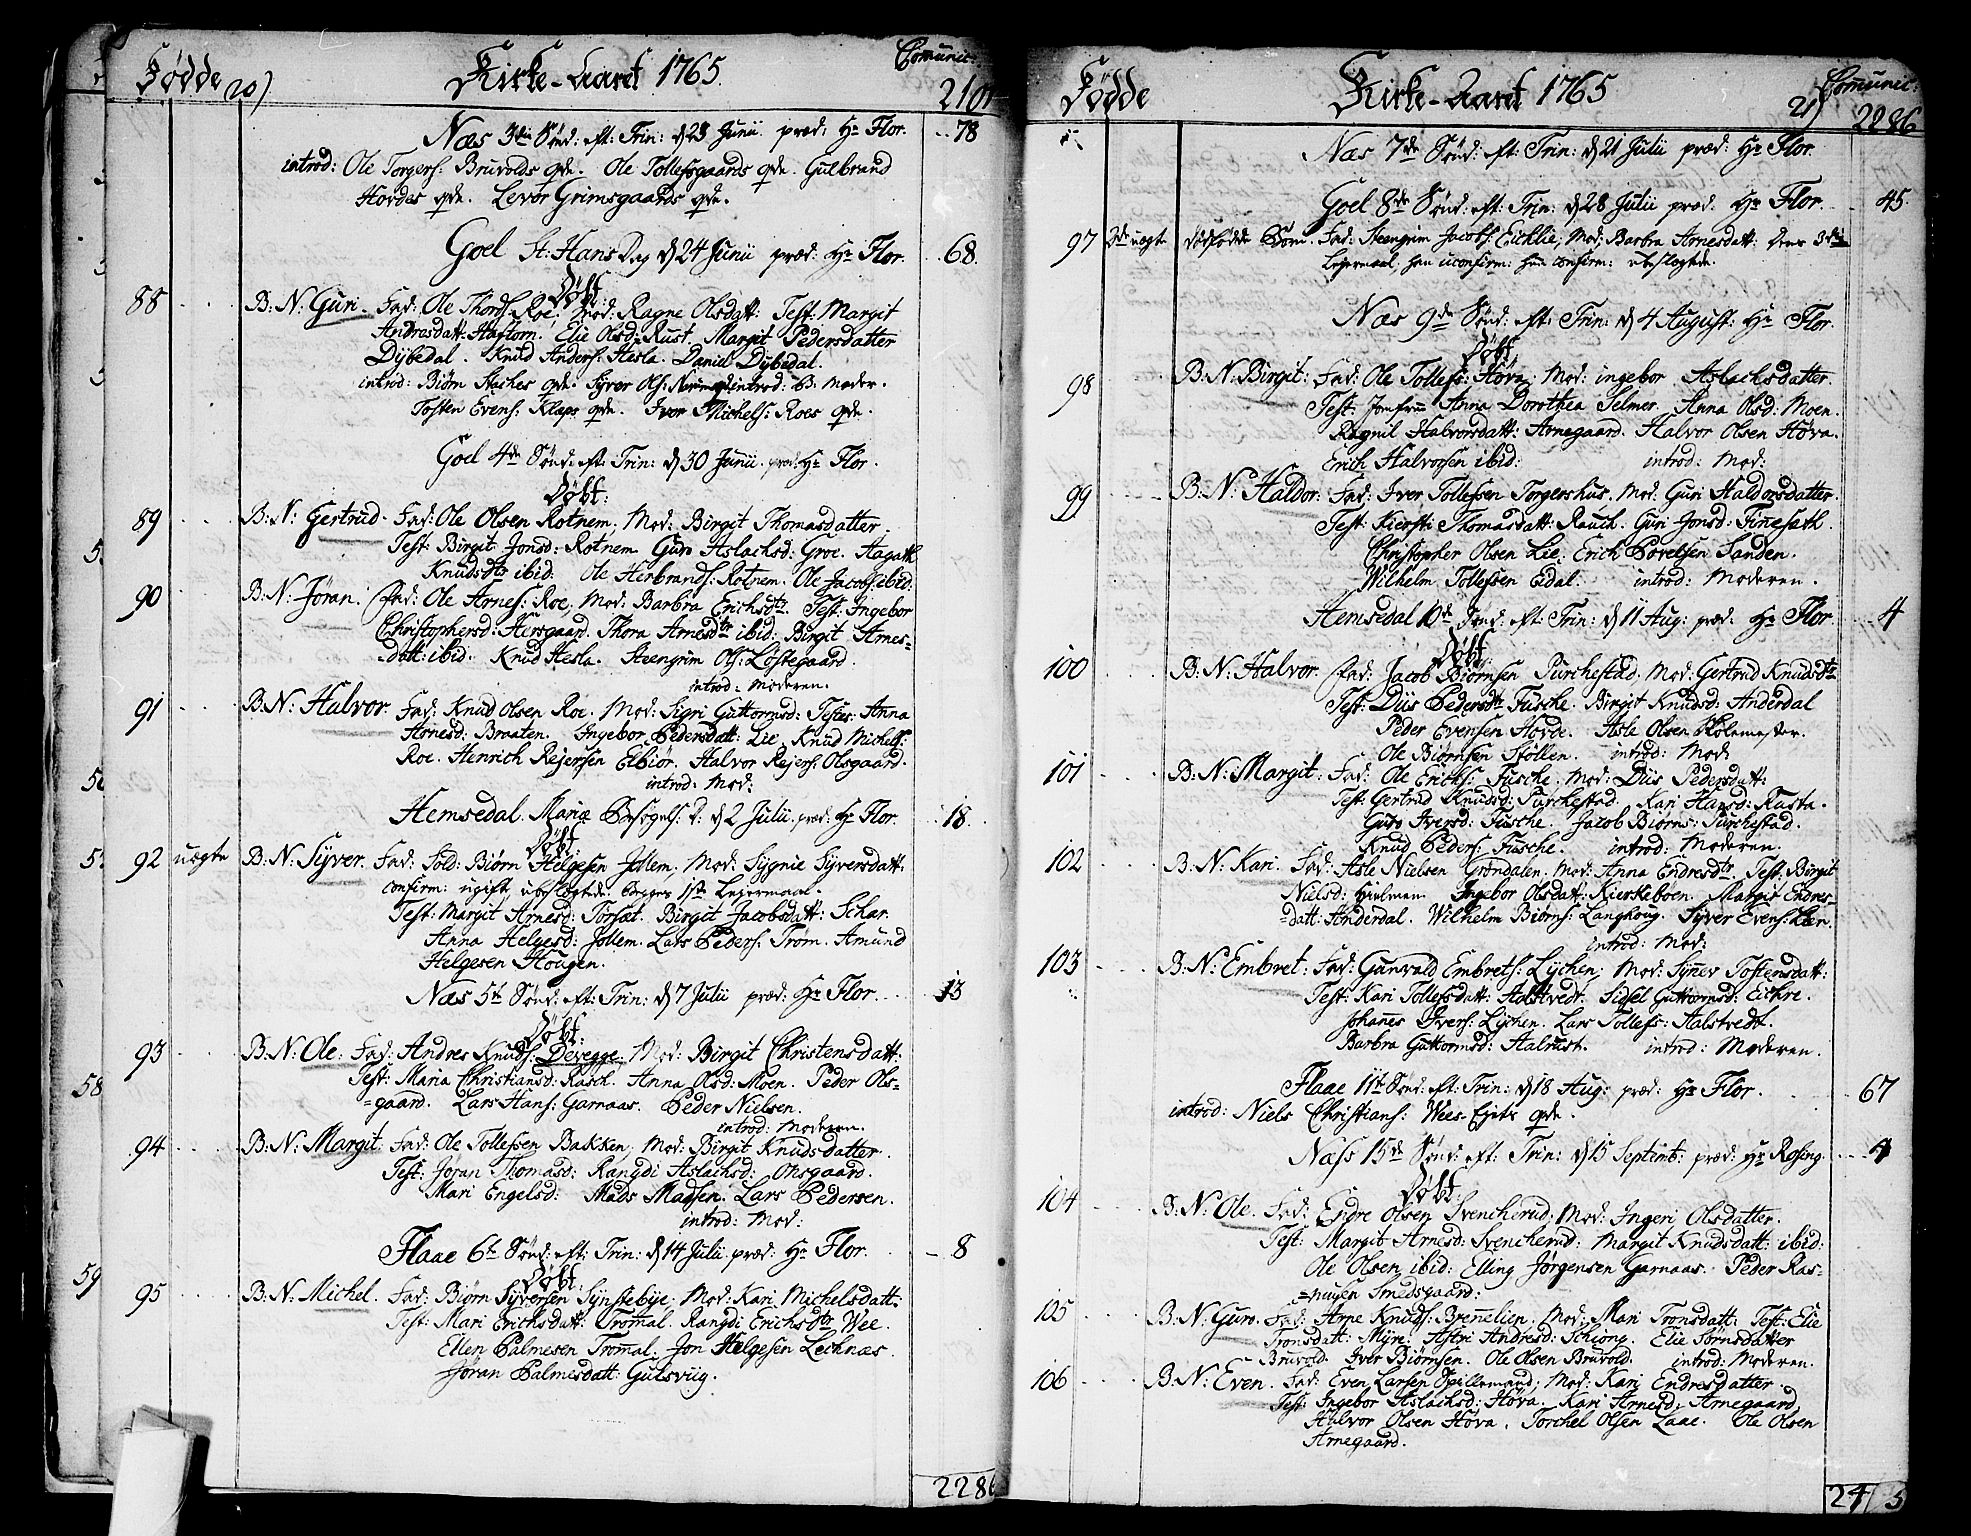 Fødde 20) Kirke-Aaret 1765. Comunic:
2101
Næs 3die Sønd: eft: Trin: d 23 Junii. præd: Hr Flor. 78
introd: Ole Torgers: Bruvolds qde. Ole Tollefsgaards qde. Gulbrand
Hovdes qde. Levor Grimsgaards qde.
Goel St: Hans Dag d 24 Junii præd: Hr Flor. 68.
Døbt:
88 B: N: Guri. Fad: Ole Thords: Roe, Mod: Ragne Olsdatt: Test: Margit
Andrasdatt: Haftorn, Elie Olsd: Rust. Margit Pedersdatter
Dybedal. Knud Anders: Hesla. Daniel Dybedal.
introd: Biørn Staches qde. Syver Ols: introd: B: Moder.
Tosten Evens: Klaps qde. Iver Michels: Roes qde.
Goel 4de Sønd: eft: Trin: d 30 Junii. præd: Hr Flor.
Døbt:
89 B: N: Gertrud. Fad: Ole Olsen Rotnem, Mod: Birgit Thomasdatter.
Test: Birgit Jonsd: Rotnem. Guro Aslachsd: Groe. Aagath
Knudsdtr ibid: Ole Herbrands: Rotnem. Ole Jacobs: ibid:
90 B: N: Jøran. Fad: Ole Arnes: Roe, Mod: Barbra Erichsdtr. Test: Ingebor
Christophersd: Hersgaard. Thora Arnesdtr ibid: Birgit Arnes=
datt: ibid. Knud Hesla. Steengrim Ols: Løstegaard.
introd: Moderen.
91 B: N: Halvor. Fad: Knud Olsen Roe. Mod: Sigri Guttormsd: Testes: Anna
Arnesd: Braaten. Ingebor Pedersdatt: Lie, Knud Michels:
Roe. Henrich Rejersen Elbiør. Halvor Rejers: Olsgaard.
introd: Mod:
Hemsedal. Mariæ Besøgels: D: d 2 Julii. præd: Hr Flor. 18.
Døbt:
92 uægte B: N: Syver. Fad: Sold: Biørn Helgesen Jøllem. Mod: Sygnie Syversdatt:
confirm: ugift, ubeslægtede, begges 1ste Lejermaal.
Test: Margit Arnesd: Torset. Birgit Jacobsdatt: Schar.
Anna Helgesd: Jøllem. Lars Peders: Trøm. Amund
Helgesen Hougen.
Næs 5te Sønd: eft: Trin: d 7 Julii præd: Hr Flor. 13
Døbt:
93 B: N: Ole. Fad: Andres Knuds: Devegge. Mod: Birgit Christensdatt:
Test: Maria Christiansd: Rasch. Anna Olsd: Moen. Peder Ols=
=gaard. Lars Hans: Garnaas. Peder Nielsen.
introd: Moderen.
94 B: N: Margit. Fad: Ole Tollefsen Bakken, Mod: Birgit Knudsdatter.
Test: Jøran Thomasd: Rangdi Aslachsd: Onsgaard.
Mari Engelsd: Mads Madsen. Lars Pedersen.
introd: Mod:
Flaae 6te Sønd: eft: Trin: d 14 Julii præd: Hr Flor. 8
Døbt:
95 B: N: Michel. Fad: Biørn Syversen Synstebÿe. Mod: Kari Michelsdatt:
Test: Mari Erichsdatt: Tromal. Rangdi Erichsdtr Wee.
Ellen Palmesen Tromal. Jon Helgesen Lechnæs.
Jøran Palmesdatt: Gulsviig.
2286
Fødde Kirke-Aaret 1765 21) Comunic:
2286
Næs 7de Sønd: eft: Trin: d 21 Julii præd: Hr Flor.
Goel 8de Sønd: eft: Trin: d 28 Julii præd: Hr Flor. 45.
97 2de uægte dødfødde Børn. Fad: Steengrim Jacobs: Eicklie, Mod: Barbra Arnesdatt: deres 3die
Lejermaal, han uconfirm: hun confirm: ubeslægtede.
Næs 9de Sønd: eft: Trin: d 4 August: Hr Flor.
Døbt
98 B: N: Birgit: Fad: Ole Tollefs: Høva, Mod: ingebor Aslachsdatter.
Test: Jomfru Anna Dorothea Selmer. Anna Olsd: Moen.
Ragnil Halvorsdatt: Arnegaard. Halvor Olsen Høva.
Erich Halvorsen ibid: introd: Mod:
99 B: N: Haldor. Fad: Iver Tollefsen Torgershus. Mod: Guri Haldorsdatter.
Test: Kiersti Thomasdatt: Rauch. Guri Jonsd: Finesath.
Christopher Olsen Lie, Erich Povelsen Sanden.
Wilhelm Tollefsen Eidal. introd: Moderen.
Hemsedal 10de Sønd: eft: Trin: d 11 Aug: præd: Hr Flor 4
Døbt
100 B: N: Halvor. Fad: Jacob Biørnsen Turchestad. Mod: Gertrud Knudsdtr
Test: Diis Pedersdtr Fusche. Birgit Knudsd: Anderdal
Peder Evensen Hovde. Asle Olsen Skolemester.
Ole Biørnsen Støllen. introd: Mod:
101 B: N: Margit. Fad: Ole Erichs: Fusche, Mod: Diis Pedersdatt:
Test: Gertrud Knudsd: Turchestad. Kari Hansd: Rusta.
Guro Iversd: Fusche. Jacob Biørns: Turchestad.
Knud Peders: Fusche. introd: Moderen.
102 B: N: Kari. Fad: Asle Nielsen Grøndalen. Mod: Anna Endresdtr. Test: Birgit
Nielsd: Hiulmen. Ingebor Olsdatt: Kierkebøen. Margit Endres=
=datt: Anderdal. Wilhelm Biørns: Langhoug. Syver Evens: Løen.
introd: Mod:
103 B: N: Embret: Fad: Gunvald Embrets: Lÿchen, Mod: Synev Tostensdatt:
Test: Kari Tollefsdatt: Aalstvedt. Sidsel Guttormsd: Eichre.
Johanes Ivers: Lÿchen. Lars Tollefs: Aalstvedt.
Barbra Guttormsd: Aalrust. introd: Moderen.
Flaae 11te Sønd: eft: Trin: d 18 Aug: præd: Hr Flor. 67
introd: Niels Christians: Wees Ejets qde.
Næss 15de Sønd: eft: Trin: d 15 Septemb: præd: Hr Rosing. 4
Døbt
104 B: N: Ole. Fad: Endre Olsen Svencherud, Mod: Ingeri Olsdatter.
Test: Margit Arnesd: Svencherud: Margit Knudsdatt: ibid:
Ole Olsen ibid: Elling Jørgensen Garnaas. Peder Ras=
=musen Smedsgaard:
105 B: N: Guro. Fad: Arne Knuds: Brenelien. Mod: Mari Tronsdatt: Test: Elie
Tronsdatt: Myre. Astri Andresd: Schiong. Elie Jørnsdatter
Bruvold. Iver Biørnsen. Ole Olsen Bruvold. introd: Moderen.
106 B: N: Even. Fad: Even Larsen Spillemand, Mod: Kari Endresdatter.
Test: Ingebor Aslachsd: Høva. Kari Arnesd: Arnegaard,
Halvor Olsen Høva. Torchel Olsen Laae. Ole Olsen
Arnegaard.